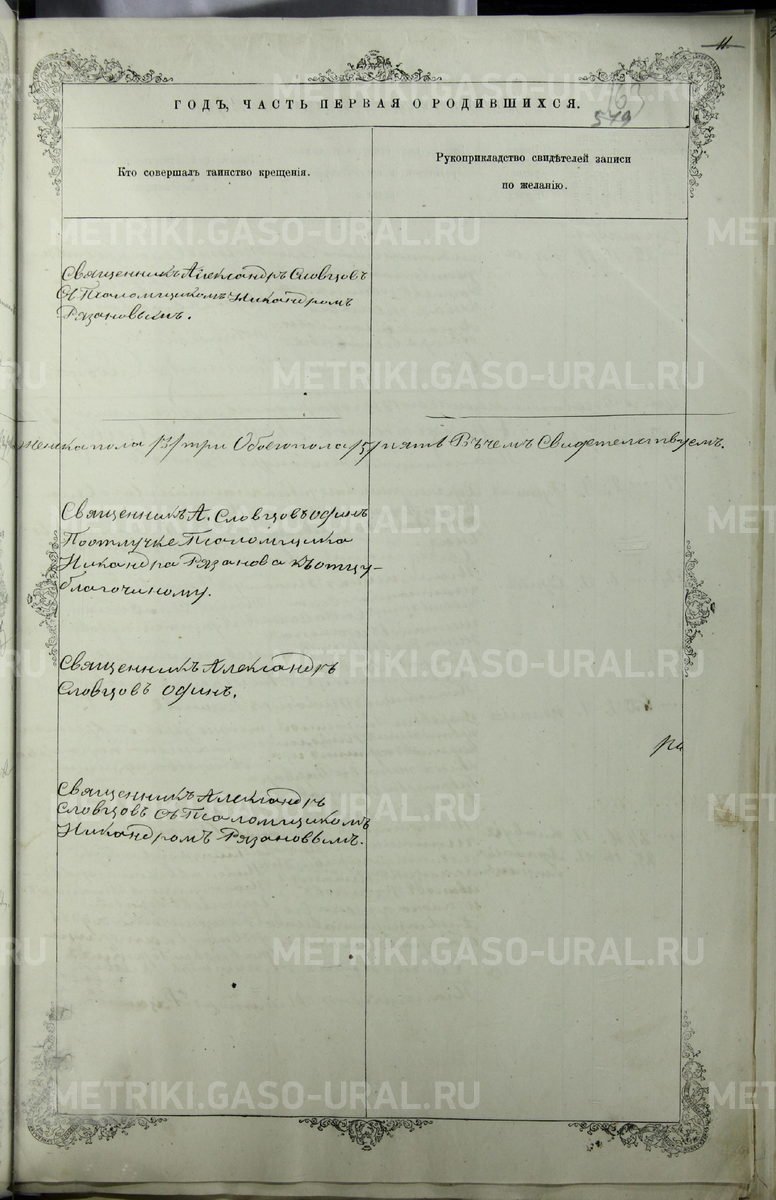 11
163
579
ГОДЪ, ЧАСТЬ ПЕРВАЯ О РОДИВШИХСЯ.
Кто совершалъ таинство крещенія.
Рукоприкладство свидѣтелей записи
по желанію.
Священникъ Александръ Словцовъ
Съ Псаломщикомъ Никандромъ
Рязановымъ.
женска пола /3/ три Обоего пола /5/ пять Въ чемъ Свидетельствуемъ.
Священникъ А. Словцовъ одинъ
По отлучке Псаломщика
Никандра Рязанова къ отцу
благочиному.
Священникъ Александръ
Словцовъ одинъ.
Священникъ Александръ
Словцовъ съ Псаломщикомъ
Никандромъ Рязановымъ.
METRIKI.GASO-URAL.RU